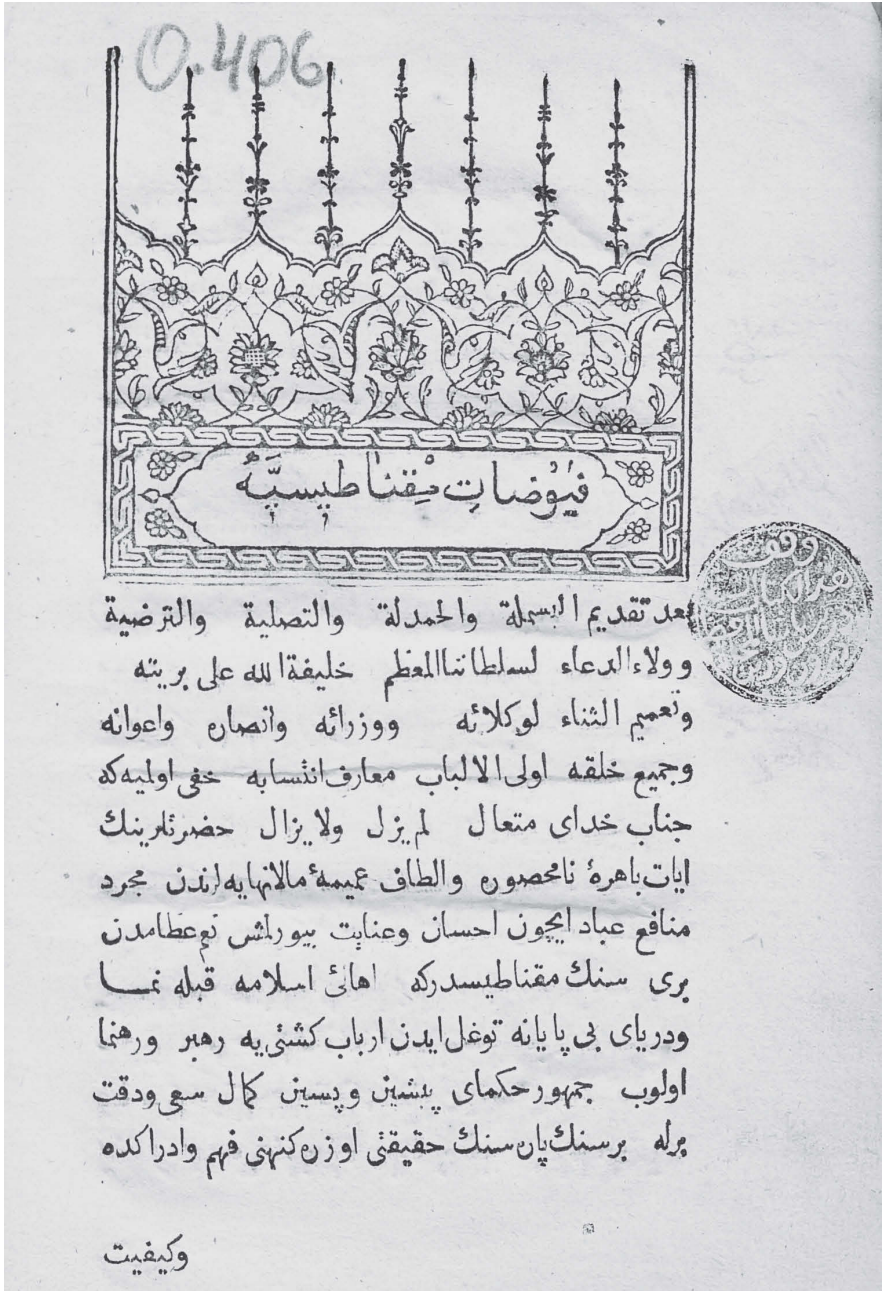 O.406
فيوضات مقناطيسيه
بعد تقديم البسملة والحمدلة والتصلية والترضية
وولاء الدعاء لسلطاننا المعظم خليفة الله على بريته
وتعميم الثناء لوكلائه ووزرائه وانصاره واعوانه
وجميع خلقه اولى الالباب معارف انتسابه خفى اولميه كه
جناب خداى متعال لم يزل ولا يزال حضرتلرينك
ايات باهرۀ نامحصوره والطاف عميمۀ مالانهايه لرندن مجرد
منافع عباد ايچون احسان وعنايت بيورلمش نعم عظامدن
برى سنك مقناطيسدركه اهالئ اسلامه قبله نما
ودرياى بى پايانه توغل ايدن ارباب كشتئ يه رهبر ورهنما
اولوب جمهور حكماى پيشين وپسين كمال سعى ودقت
برله برسنك پاره سنك حقيقتى اوزره كنهنى فهم وادراكده
وكيفيت
وقف
هذا الكتاب